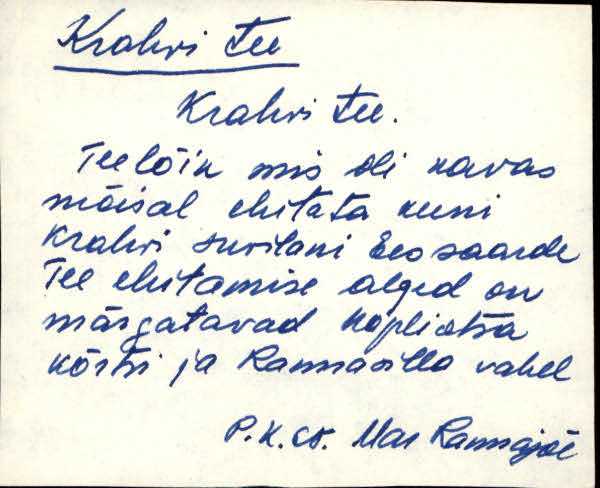 Krahvi tee
Krahvi tee.
Teelõik mis oli kavas
mõisal ehitata kuni
Krahvi suvilani Eeosaarde
Tee ehitamise alged on
märgatavad kopliotsa
kõrtsi ja Rannasilla vahel
P.K.